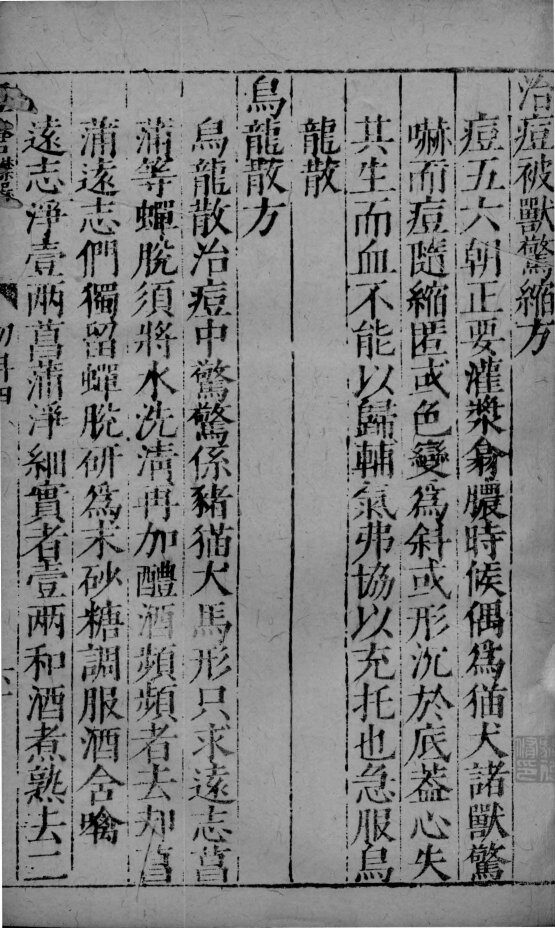 治痘被獸驚縮方
痘五六朝正要灌漿翕膿時候偶為猫犬諸獸驚
嚇而痘隨縮匿或色變為斜或形沉於底葢心失
其生而血不能以歸輔氣弗協以充托也急服烏
龍散
烏龍散方
烏龍散治痘中驚驚係豬猫犬馬形只求遠志菖
蒲等蟬脫須將水洗清再加醴酒頻頻者去却菖
蒲遠志們獨留蟬脫研為末砂糖調服酒含噙
遠志淨壹兩菖蒲淨細實者壹兩和酒煮熟去二